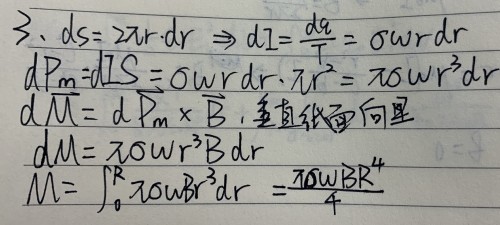 3、ds=2πr·dr ⇒ dI=dq/T=σωrdr
dPm=dIS=σωrdr·πr²=πσωr³dr
dM⃗=dP⃗m×B⃗，垂直纸面向里
dM=πσωr³Bdr
M=∫₀ᴿπσωBr³dr=πσωBR⁴/4